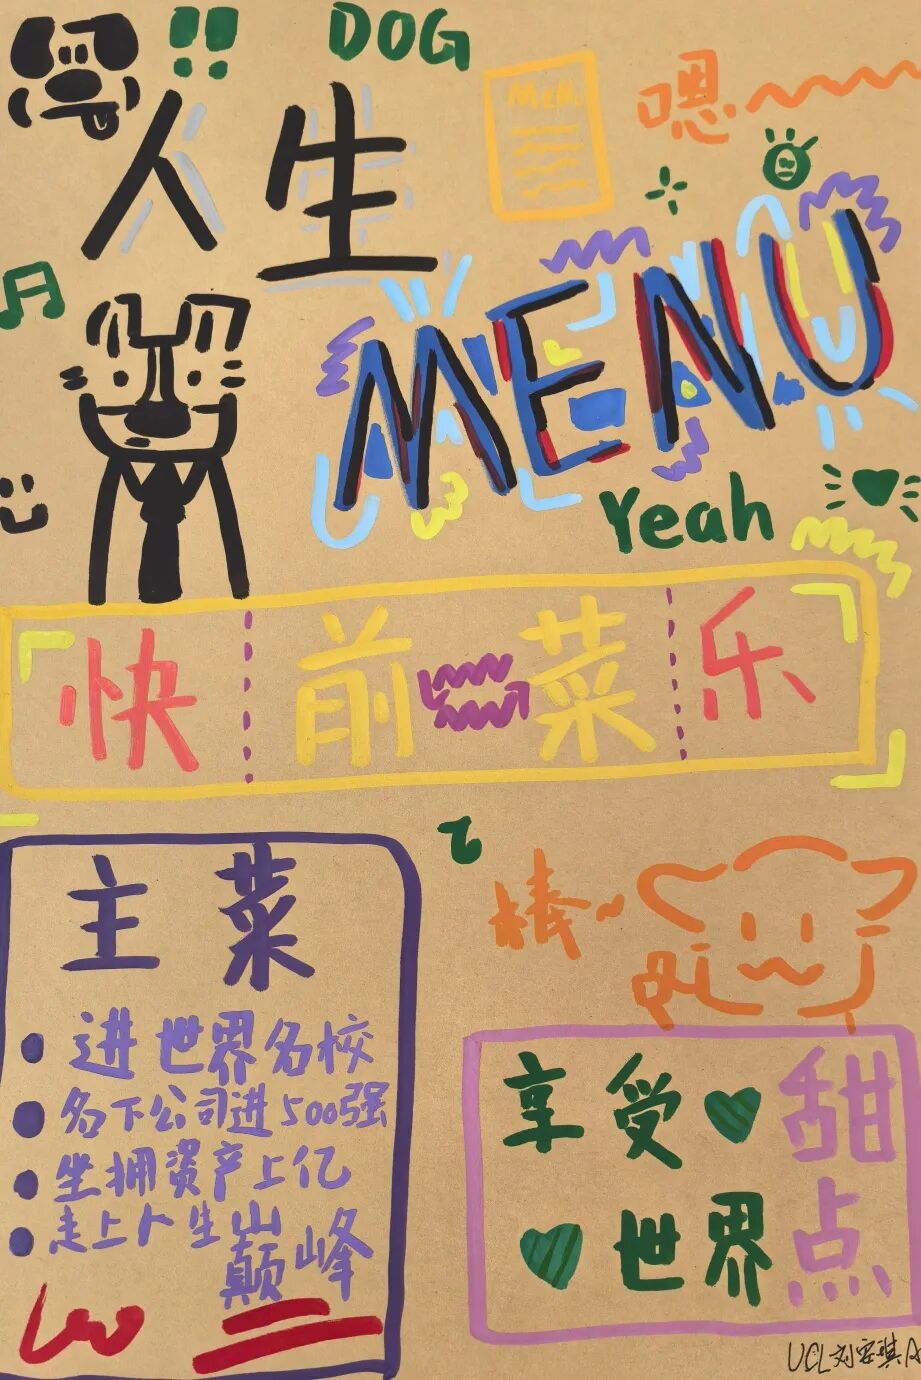 DOG
!!
人生
Menu
嗯
MENU
Yeah
快 前菜 乐
主菜
进世界名校
名下公司进500强
坐拥资产上亿
走上人生巅峰
棒~
享受
世界
甜点
UCL刘安琪